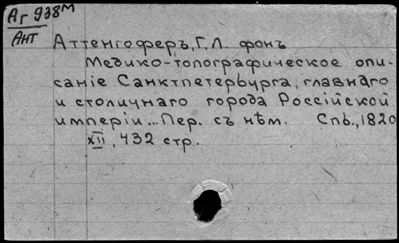 Аг 938м
Ант
Аттенгоферъ, Г.Л. фонъ
Медико-топографическое опи-
саніе Санктпетербурга, главнаго
и столичнаго города Россійской
имперіи... Пер. съ нѣм. Спь., 1820
XII, 432 стр.